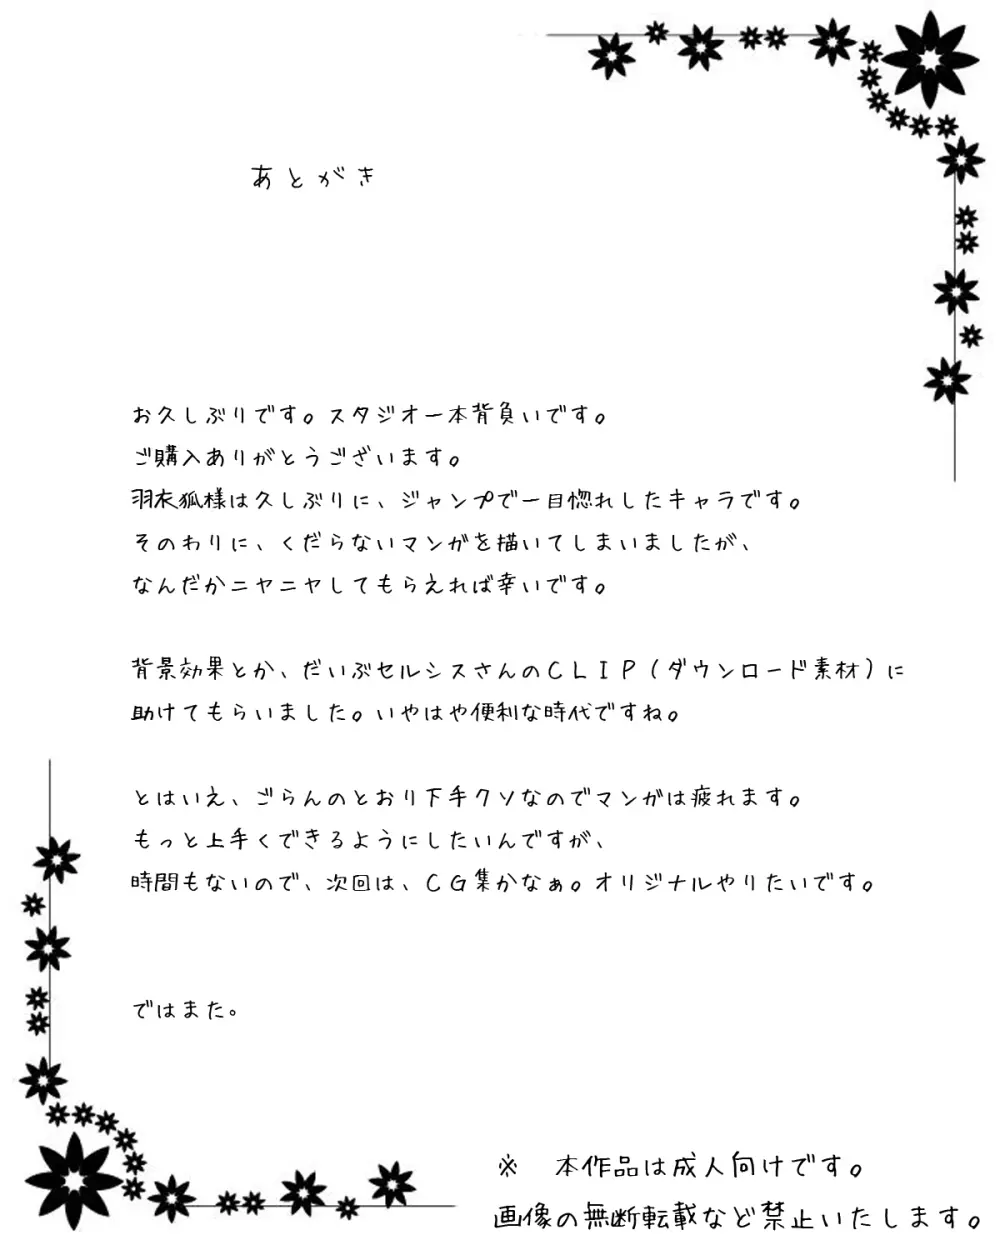 あとがき
お久しぶりです。スタジオ一本背負いです。
ご購入ありがとうございます。
羽衣狐様は久しぶりに、ジャンプで一目惚れしたキャラです。
そのわりに、くだらないマンガを描いてしまいましたが、
なんだかニヤニヤしてもらえれば幸いです。
背景効果とか、だいぶセルシスさんのCLIP(ダウンロード素材)に
助けてもらいました。いやはや便利な時代ですね。
とはいえ、ごらんのとおり下手クソなのでマンガは疲れます。
もっと上手くできるようにしたいんですが、
時間もないので、次回は、CG集かなぁ。オリジナルやりたいです。
ではまた。
※　本作品は成人向けです。
画像の無断転載など禁止いたします。